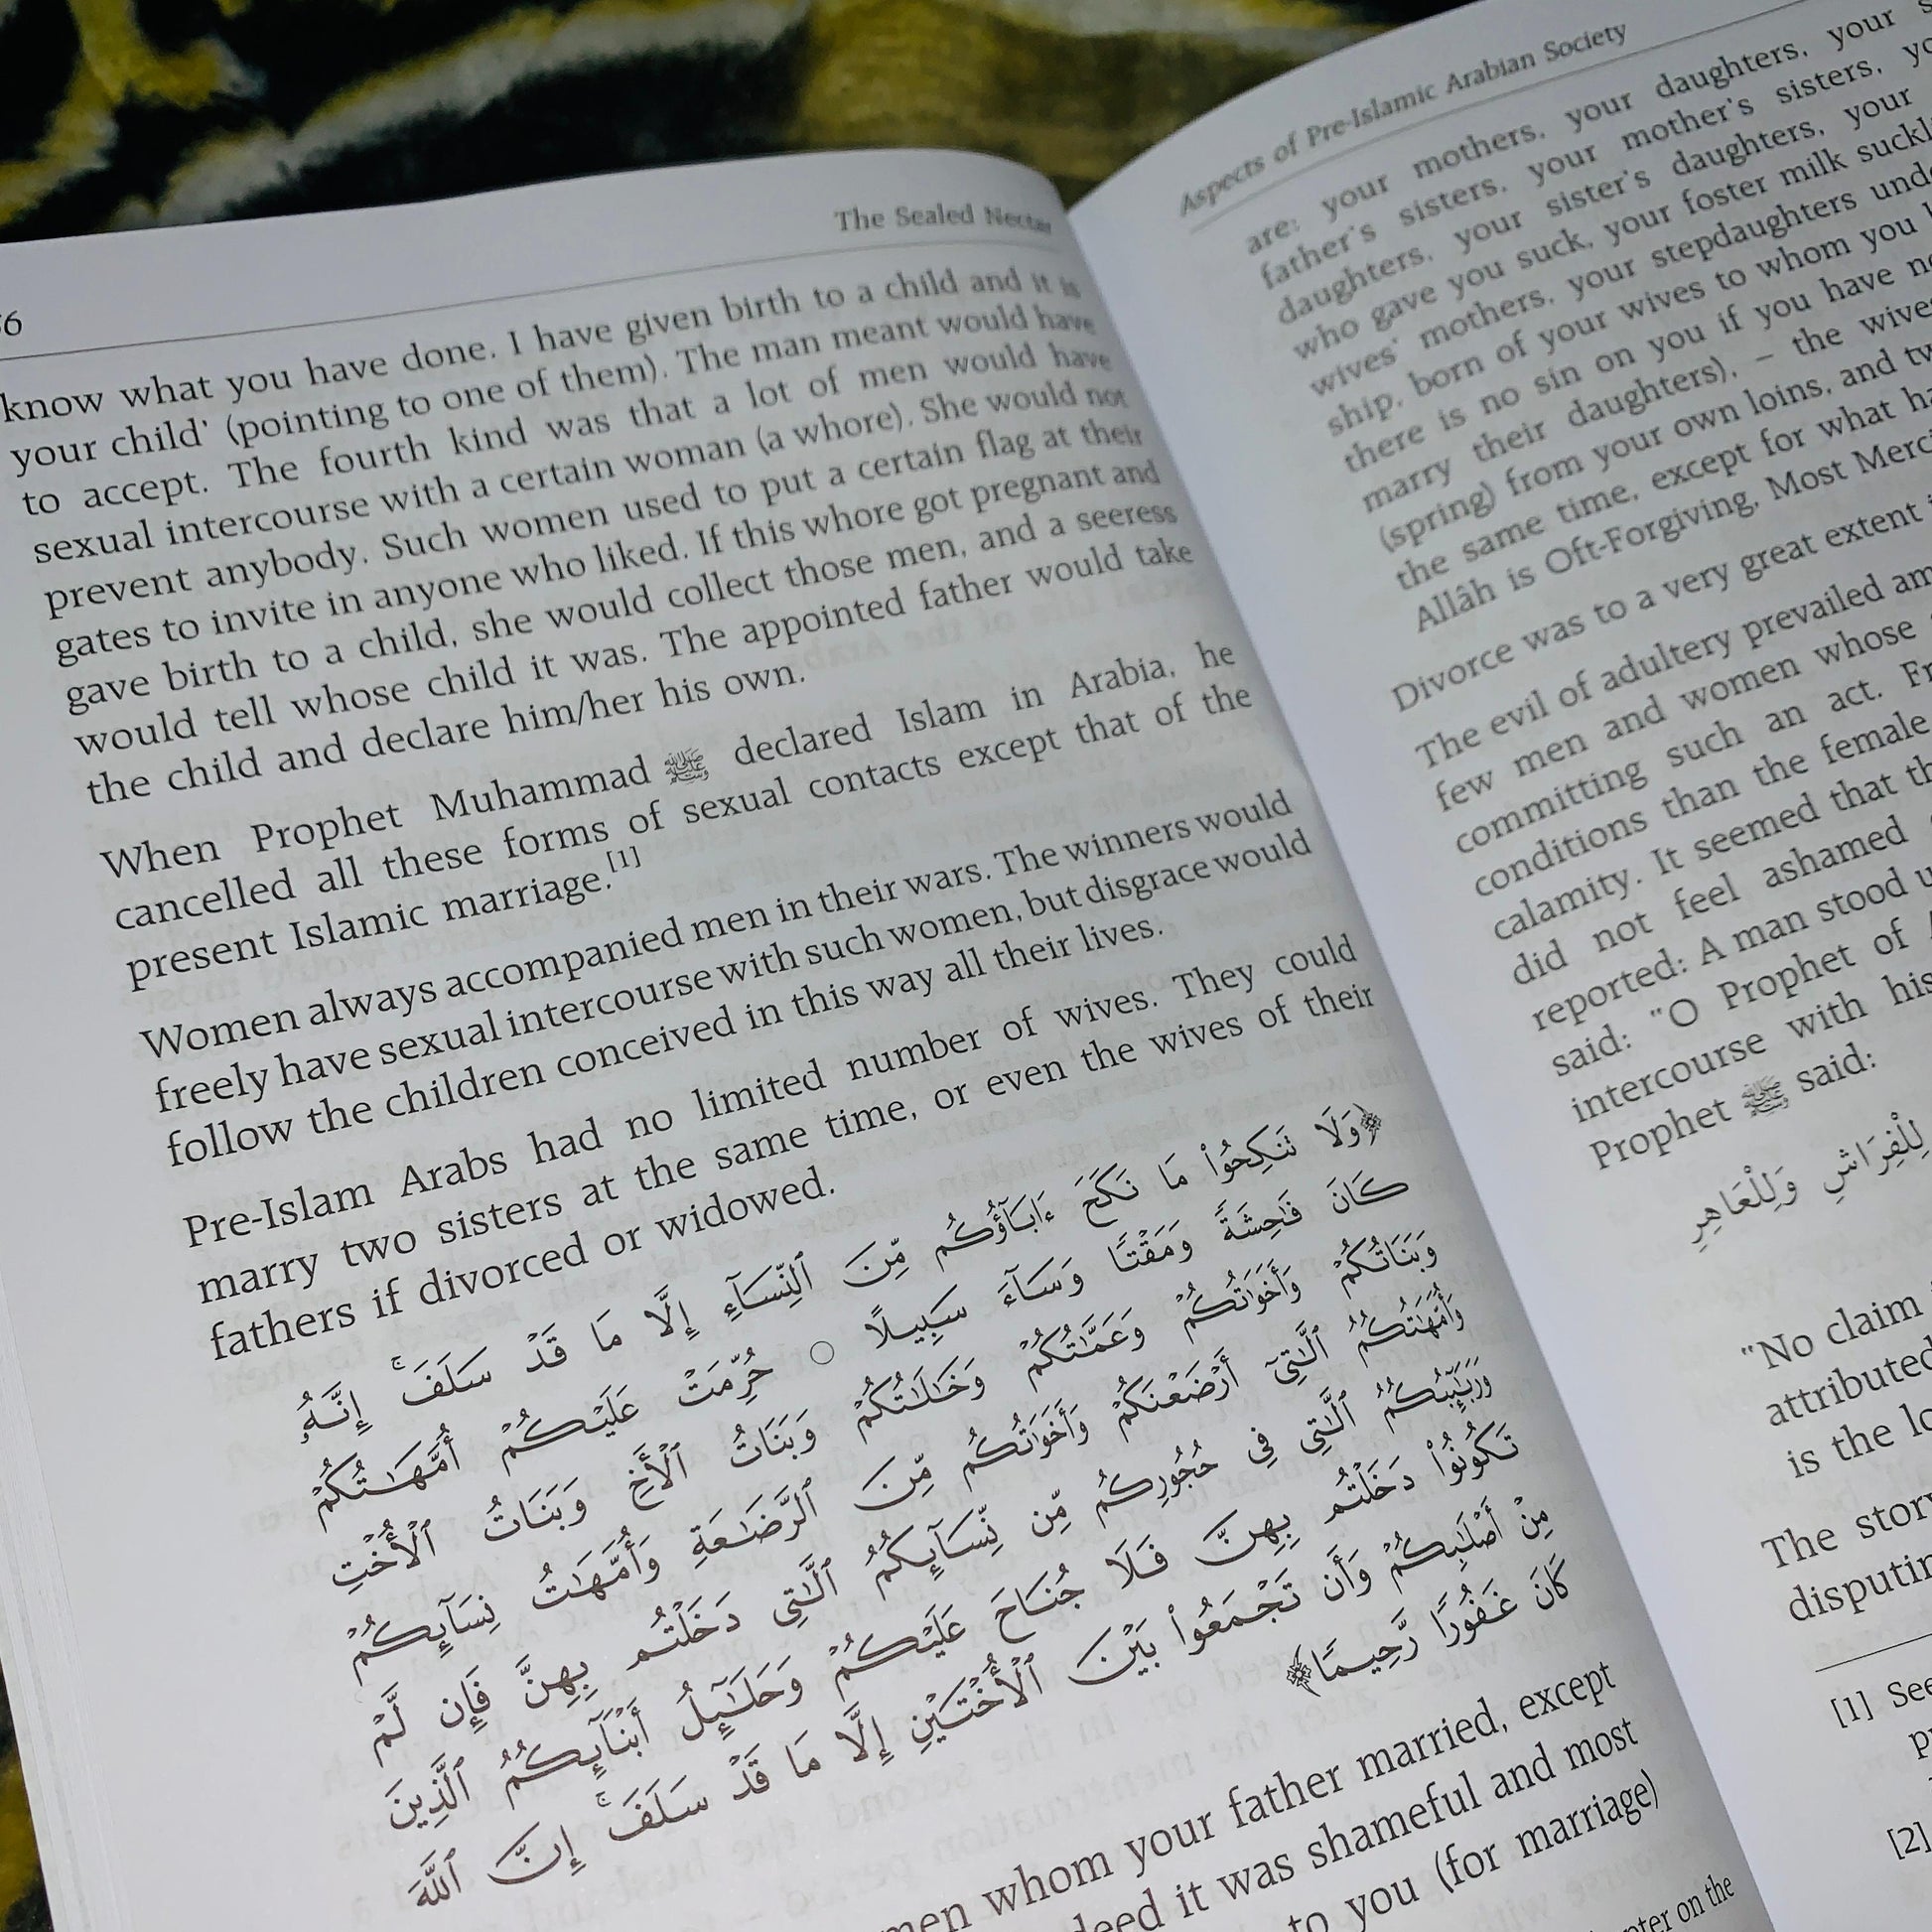 The Sealed Nectar
know what you have done. I have given birth to a child and it is
your child' (pointing to one of them). The man meant would have
to accept. The fourth kind was that a lot of men would have
sexual intercourse with a certain woman (a whore). She would not
prevent anybody. Such women used to put a certain flag at their
gates to invite in anyone who liked. If this whore got pregnant and
gave birth to a child, she would collect those men, and a seeress
would tell whose child it was. The appointed father would take
the child and declare him/her his own.
When Prophet Muhammad ﷺ declared Islam in Arabia, he
cancelled all these forms of sexual contacts except that of the
present Islamic marriage.[1]
Women always accompanied men in their wars. The winners would
freely have sexual intercourse with such women, but disgrace would
follow the children conceived in this way all their lives.
Pre-Islam Arabs had no limited number of wives. They could
marry two sisters at the same time, or even the wives of their
fathers if divorced or widowed.
﴿وَلَا تَنكِحُوا۟ مَا نَكَحَ ءَابَآؤُكُم مِّنَ ٱلنِّسَآءِ إِلَّا مَا قَدْ سَلَفَ ۚ إِنَّهُۥ
كَانَ فَـٰحِشَةً وَمَقْتًا وَسَآءَ سَبِيلًا ○ حُرِّمَتْ عَلَيْكُمْ أُمَّهَـٰتُكُمْ
وَبَنَاتُكُمْ وَأَخَوَٰتُكُمْ وَعَمَّـٰتُكُمْ وَخَـٰلَـٰتُكُمْ وَبَنَاتُ ٱلْأَخِ وَبَنَاتُ ٱلْأُخْتِ
وَأُمَّهَـٰتُكُمُ ٱلَّـٰتِىٓ أَرْضَعْنَكُمْ وَأَخَوَٰتُكُم مِّنَ ٱلرَّضَـٰعَةِ وَأُمَّهَـٰتُ نِسَآئِكُمْ
وَرَبَـٰٓئِبُكُمُ ٱلَّـٰتِى فِى حُجُورِكُم مِّن نِّسَآئِكُمُ ٱلَّـٰتِى دَخَلْتُم بِهِنَّ فَإِن لَّمْ
تَكُونُوا۟ دَخَلْتُم بِهِنَّ فَلَا جُنَاحَ عَلَيْكُمْ وَحَلَـٰٓئِلُ أَبْنَآئِكُمُ ٱلَّذِينَ
مِنْ أَصْلَـٰبِكُمْ وَأَن تَجْمَعُوا۟ بَيْنَ ٱلْأُخْتَيْنِ إِلَّا مَا قَدْ سَلَفَ ۚ إِنَّ ٱللَّهَ
كَانَ غَفُورًا رَّحِيمًا﴾
whom your father married, except
it was shameful and most
to you (for marriage)
on the
Aspects of Pre-Islamic Arabian Society
are: your mothers, your daughters, your
father's sisters, your mother's sisters,
daughters, your sister's daughters, your
who gave you suck, your foster milk
wives' mothers, your stepdaughters
ship, born of your wives to whom you
there is no sin on you if you have
marry their daughters), – the
(spring) from your own loins, and
the same time, except for what
Allâh is Oft-Forgiving, Most
Divorce was to a very great extent
The evil of adultery prevailed
few men and women whose
committing such an act.
conditions than the female
calamity. It seemed that
did not feel ashamed
reported: A man stood
said: "O Prophet of
intercourse with
Prophet ﷺ said:
لِلْفِرَاشِ وَلِلْعَاهِرِ
"No claim
attributed
is the
The
[1] See
[2]